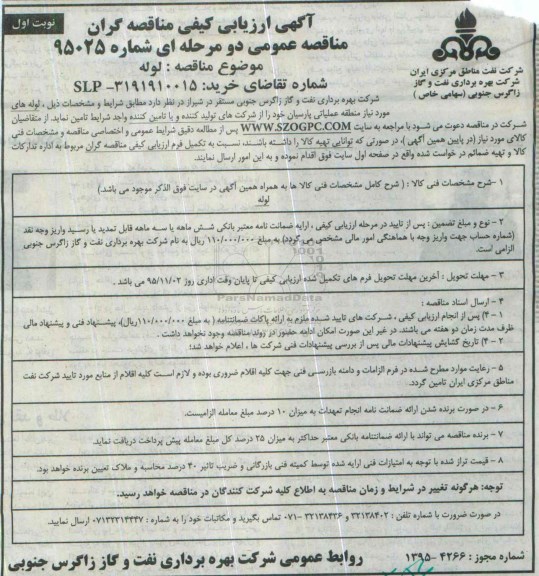 نوبت اول
آگهی ارزیابی کیفی مناقصه گران
مناقصه عمومی دو مرحله ای شماره ۹۵۰۲۵
موضوع مناقصه : لوله
شماره تقاضای خرید: SLP -۳۱۹۱۹۱۰۰۱۵
شرکت نفت مناطق مرکزی ایران
شرکت بهره برداری نفت و گاز
زاگرس جنوبی (سهامی خاص )
شرکت بهره برداری نفت و گاز زاگرس جنوبی مستقر در شیراز در نظر دارد مطابق شرایط و مشخصات ذیل ، لوله های
مورد نیاز منطقه عملیاتی پارسیان خود را از شرکت های تولید کننده و یا تامین کننده واجد شرایط تامین نماید. از متقاضیان
شرکت در مناقصه دعوت می شود با مراجعه به سایت WWW.SZOGPC.COM پس از مطالعه دقیق شرایط عمومی و اختصاصی مناقصه و مشخصات فنی
کالای مورد نیاز (در پایین همین آگهی )، در صورتی که توانایی تهیه کالا را داشته باشند، نسبت به تکمیل فرم ارزیابی کیفی مناقصه گران مربوط به اداره تدارکات
کالا و تهیه ضمائم در خواست شده واقع در صفحه اول سایت فوق اقدام نموده و به این امور ارسال نمایند.
۱-شرح مشخصات فنی کالا : ( شرح کامل مشخصات فنی کالا ها به همراه همین آگهی در سایت فوق الذکر موجود می باشد.)
لوله
۲- نوع و مبلغ تضمین : پس از تایید در مرحله ارزیابی کیفی ، ارایه ضمانت نامه معتبر بانکی شش ماهه یا سه ماهه قابل تمدید یا رسید واریز وجه نقد
(شماره حساب جهت واریز وجه با هماهنگی امور مالی مشخص می گردد) به مبلغ ۱۱۰/۰۰۰/۰۰۰ ریال به نام شرکت بهره برداری نفت و گاز زاگرس جنوبی
الزامی است.
۳ - مهلت تحویل : آخرین مهلت تحویل فرم های تکمیل شده ارزیابی کیفی تا پایان وقت اداری روز ۹۵/۱۱/۰۲ می باشد .
ParsNamadData
۴ - ارسال اسناد مناقصه :
۱-۴) پس از انجام ارزیابی کیفی ، شرکت های تایید شده ملزم به ارائه پاکات ضمانتنامه ( به مبلغ ۱۱۰/۰۰۰/۰۰۰ریال)، پیشنهاد فنی و پیشنهاد مالی
ظرف مدت زمان دو هفته می باشند. در غیر این صورت امکان ادامه حضور در روند مناقصه وجود نخواهد داشت .
۲-۴) تاریخ گشایش پیشنهادات مالی پس از بررسی پیشنهادات فنی شرکت ها ، اعلام خواهد شد؛
۵ - رعایت موارد مطرح شده در فرم الزامات و دامنه بازرسی فنی جهت کلیه اقلام ضروری بوده و لازم است کلیه اقلام از منابع مورد تایید شرکت نفت
مناطق مرکزی ایران تامین گردد.
۶ - در صورت برنده شدن ارائه ضمانت نامه انجام تعهدات به میزان ۱۰ درصد مبلغ معامله الزامیست.
۷ - برنده مناقصه می تواند با ارائه ضمانتنامه بانکی معتبر حداکثر به میزان ۲۵ درصد کل مبلغ معامله پیش پرداخت دریافت نماید.
۸ - قیمت تراز شده با توجه به امتیازات فنی ارایه شده توسط کمیته فنی بازرگانی و ضریب تاثیر ۴۰ درصد محاسبه و ملاک تعیین برنده خواهد بود.
توجه: هرگونه تغییر در شرایط و زمان مناقصه به اطلاع کلیه شرکت کنندگان در مناقصه خواهد رسید.
در صورت ضرورت با شماره تلفن : ۳۲۱۳۸۴۰۲ و ۳۲۱۳۸۴۳۶ -۰۷۱ تماس بگیرید و مکاتبات خود را به شماره : ۰۷۱۳۲۳۱۴۴۴۷ ارسال نمایید.
شماره مجوز : ۴۲۶۶ -۱۳۹۵
روابط عمومی شرکت بهره برداری نفت و گاز زاگرس جنوبی